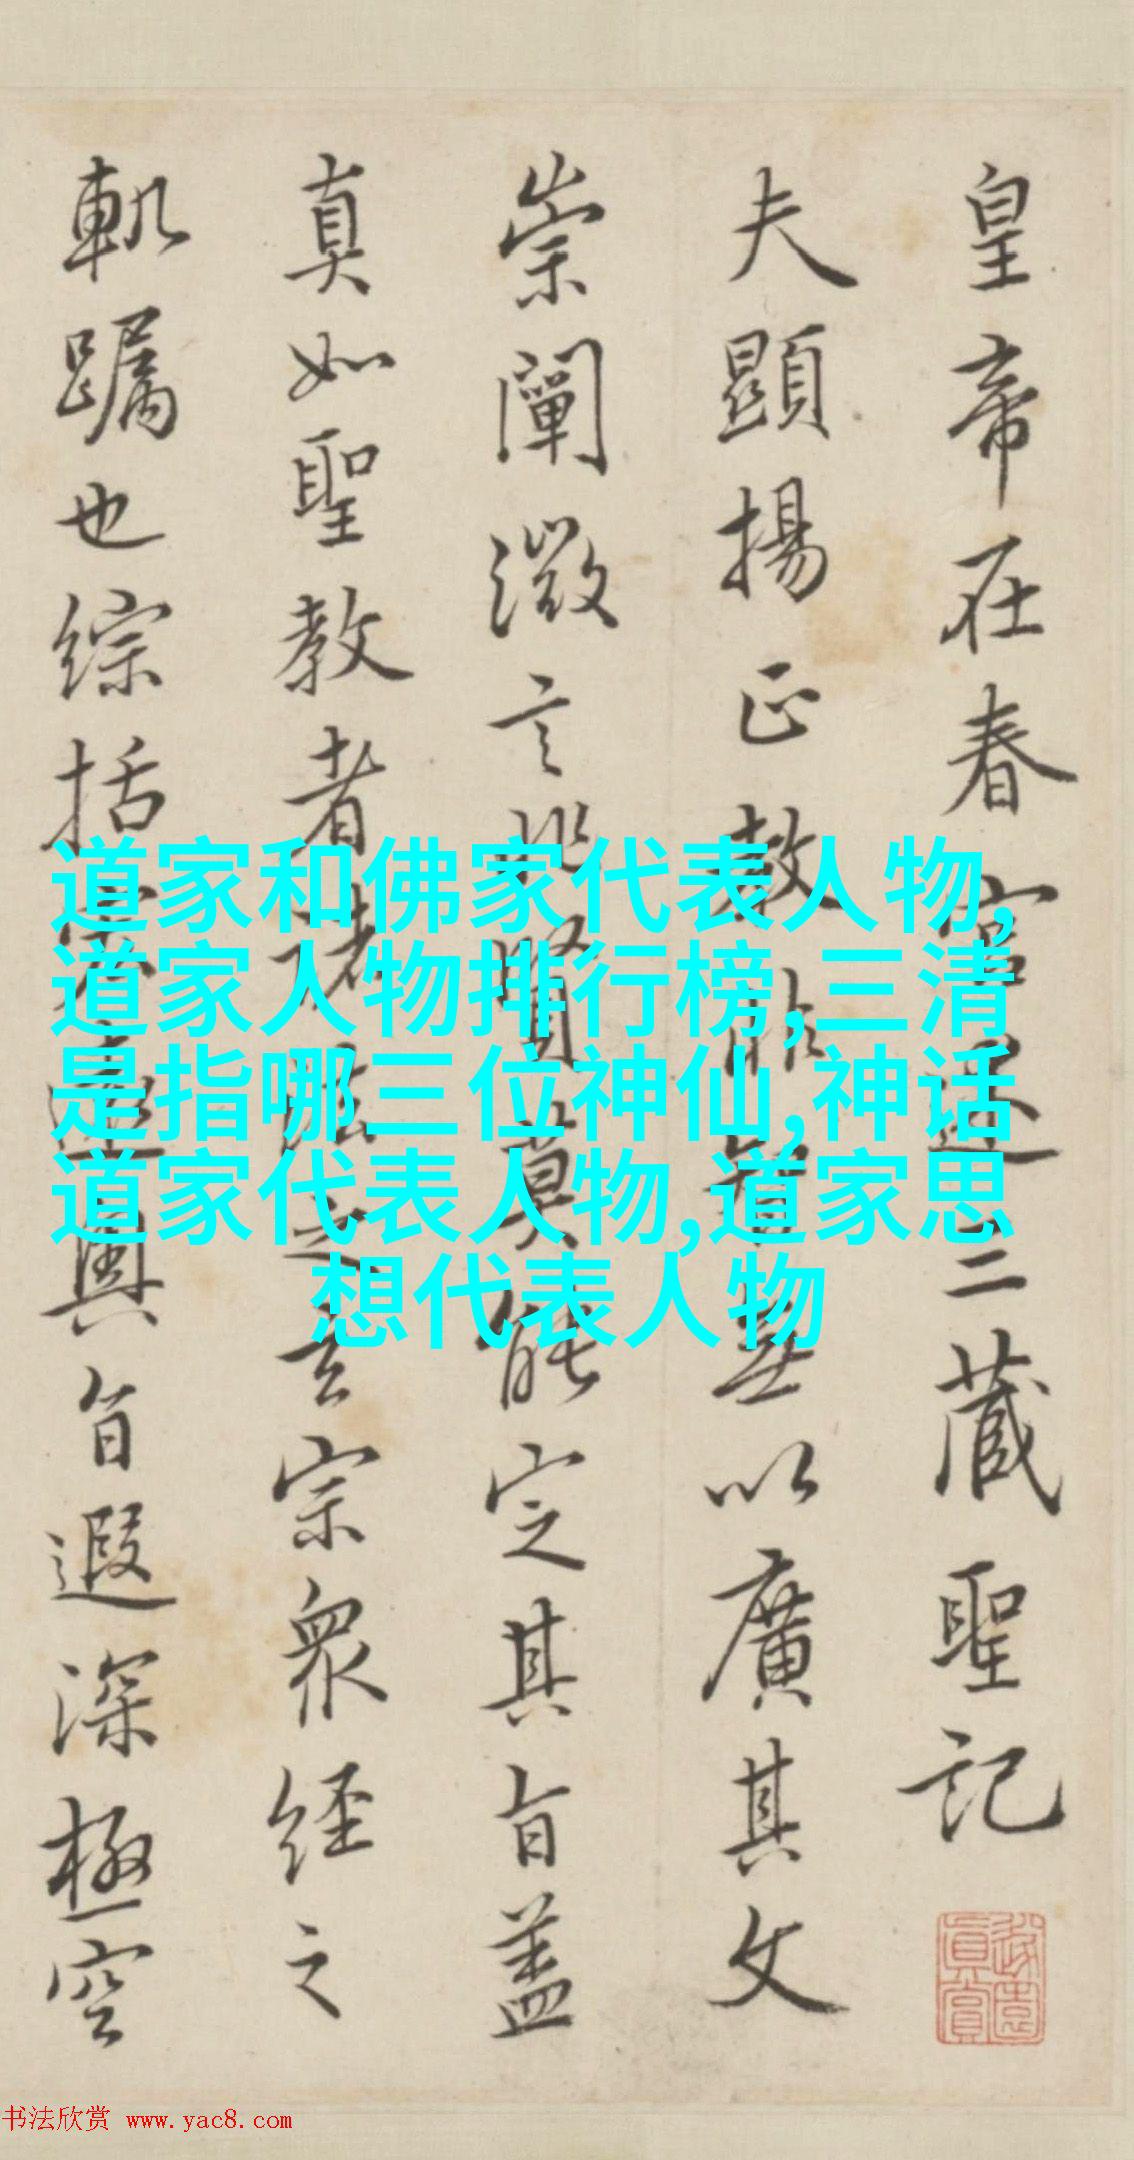 皇帝在春宮述三藏聖記
夫顯揚正教非智無以廣其文
崇闡微言非賢莫能定其旨蓋
真如聖教者諸法之玄宗衆經之
軌躅也綜括宏遠奧旨遐深極空
道家和佛家代表人物,
道家人物排行榜,三清
是指哪三位神仙,神话
道家代表人物,道家思
想代表人物
书法欣赏 www.yac8.com